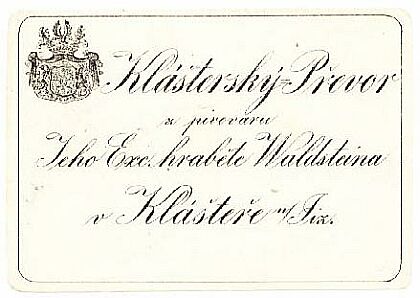 Klášterský=Převor
z pivovaru
Jeho Exc. hraběte Waldsteina
v Klášteře n/Jiz.